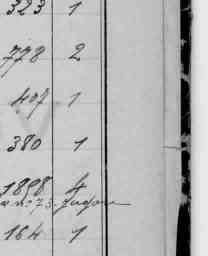 323 1
778 2
407 1
380 1
1898 4
164 1